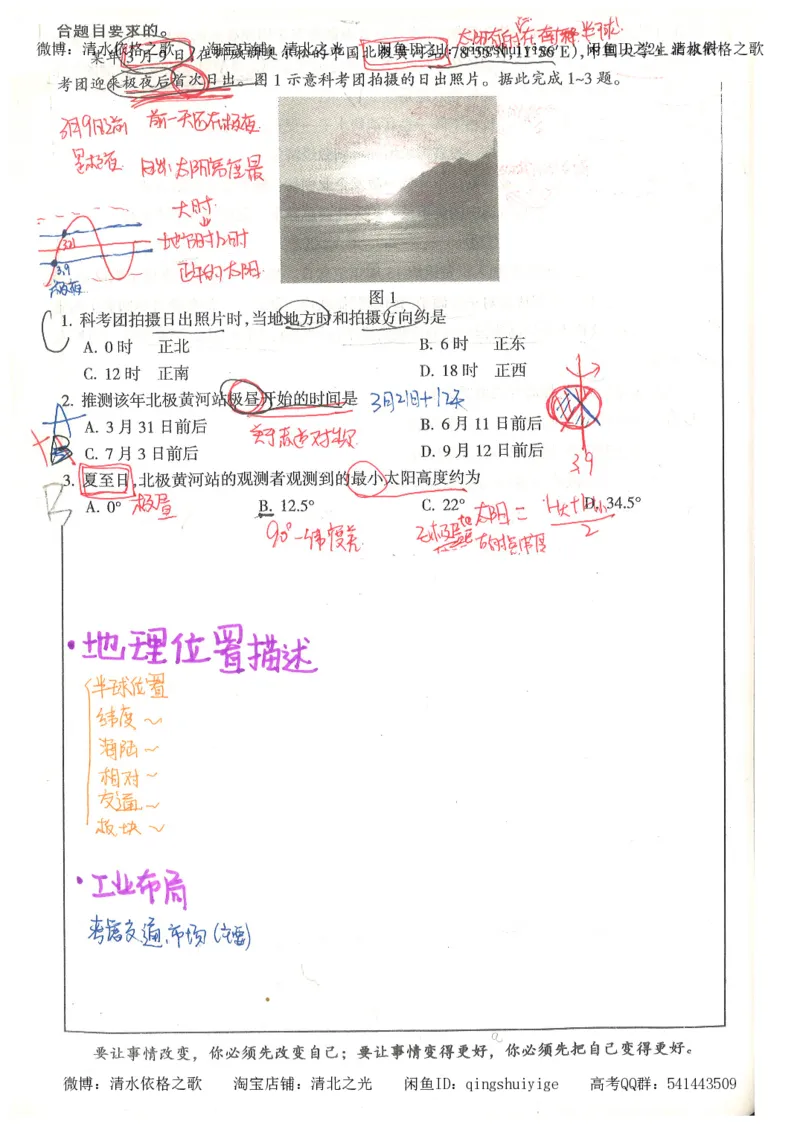 合题目要求的。
太阳直射在南半球
微博：清水依格之歌 淘宝店铺：清北之光 闲鱼ID：qingshuiyige
某年3月9日，在的中国北极黄河站(78°55′N,11°56′E)，中国大学生
考团迎来极夜后首次日出。图1示意科考团拍摄的日出照片。据此完成1~3题。
3月9日前 前一天还在极夜
是极夜 日出太阳高度最
大时
地方时12时
正午的太阳
3.21
3.9
极夜
图1
C
1. 科考团拍摄日出照片时，当地地方时和拍摄方向约是
A. 0时 正北 B. 6时 正东
C. 12时 正南 D. 18时 正西
2. 推测该年北极黄河站极昼开始的时间是 3月21日+12天
A
A. 3月31日前后 B. 6月11日前后
关于春分对称
C. 7月3日前后 D. 9月12日前后
3.9
3. 夏至日，北极黄河站的观测者观测到的最小太阳高度约为
B
A. 0° 极昼 B. 12.5° C. 22° D. 34.5°
90°-纬度差
太阳= H大+H小
2
·地理位置描述
半球位置
纬度~
海陆~
相对~
交通~
板块~
·工业布局
考虑交通、市场(主要)
要让事情改变，你必须先改变自己；要让事情变得更好，你必须先把自己变得更好。
微博：清水依格之歌 淘宝店铺：清北之光 闲鱼ID：qingshuiyige 高考QQ群：541443509